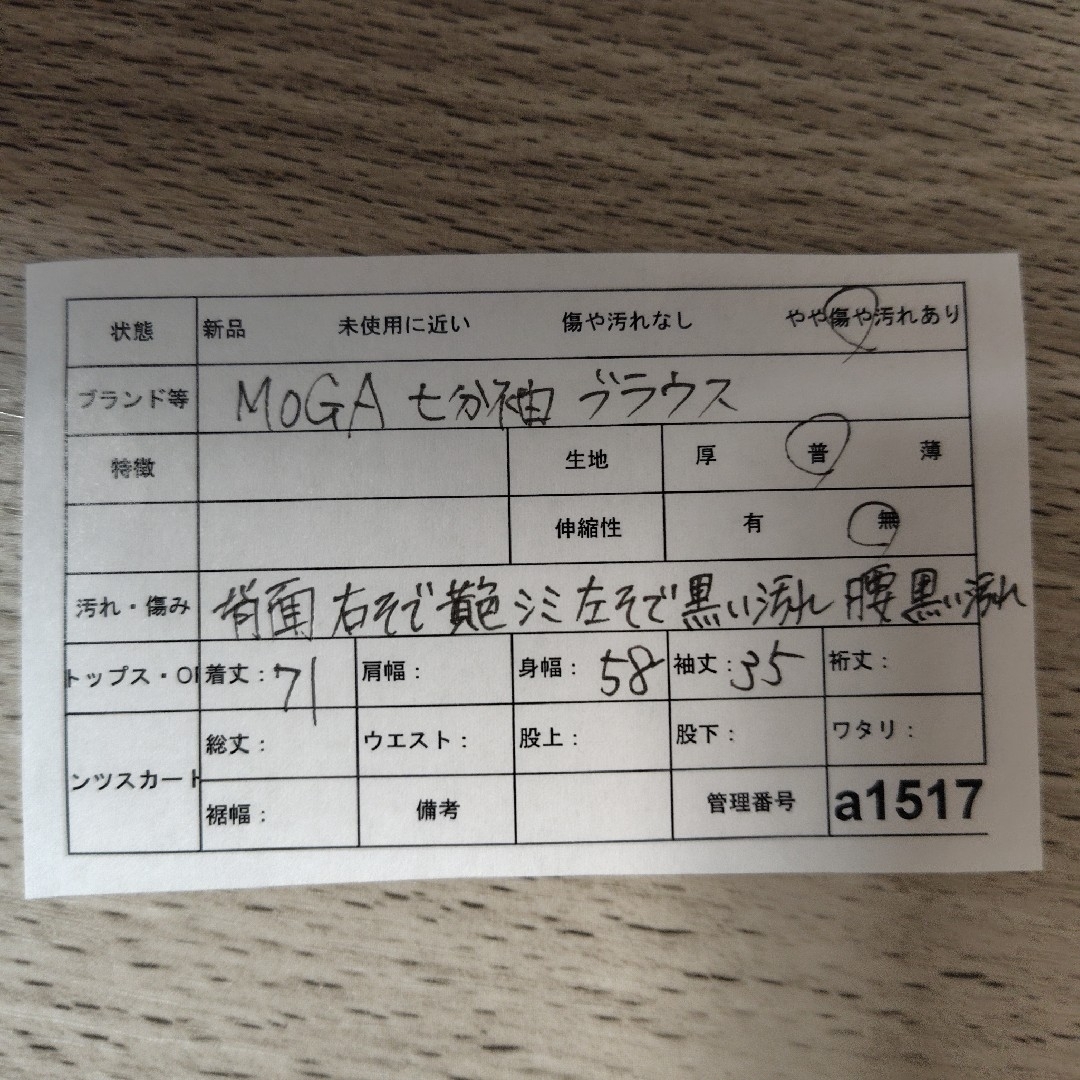 状態 新品 未使用に近い 傷や汚れなし やや傷や汚れあり
ブランド等 MOGA 七分袖 ブラウス
特徴 生地 厚 普 薄
伸縮性 有 無
汚れ・傷み 背面 右そで 黄色シミ 左そで黒い汚れ 腰 黒い汚れ
トップス・O 着丈:71 肩幅: 身幅:58 袖丈:35 裄丈:
ンツスカート 総丈: ウエスト: 股上: 股下: ワタリ:
裾幅: 備考 管理番号 a1517